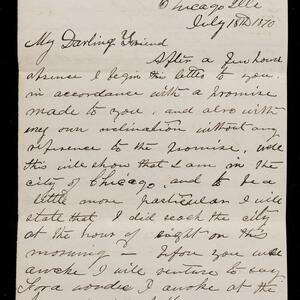 Chicago Ills
July 18th 1870
My Darling Friend
After a few hours
absence I begin this letter to you.
in accordance with a Promise
made to you, and also with
my own inclination without any
reference to the Promise, well
this will show that I am in the
city of Chicago, and to be a
little more particular I will
state that I did reach the city
at the hour of eight on this
morning — before you were
awake I will venture to say.
I awoke at the